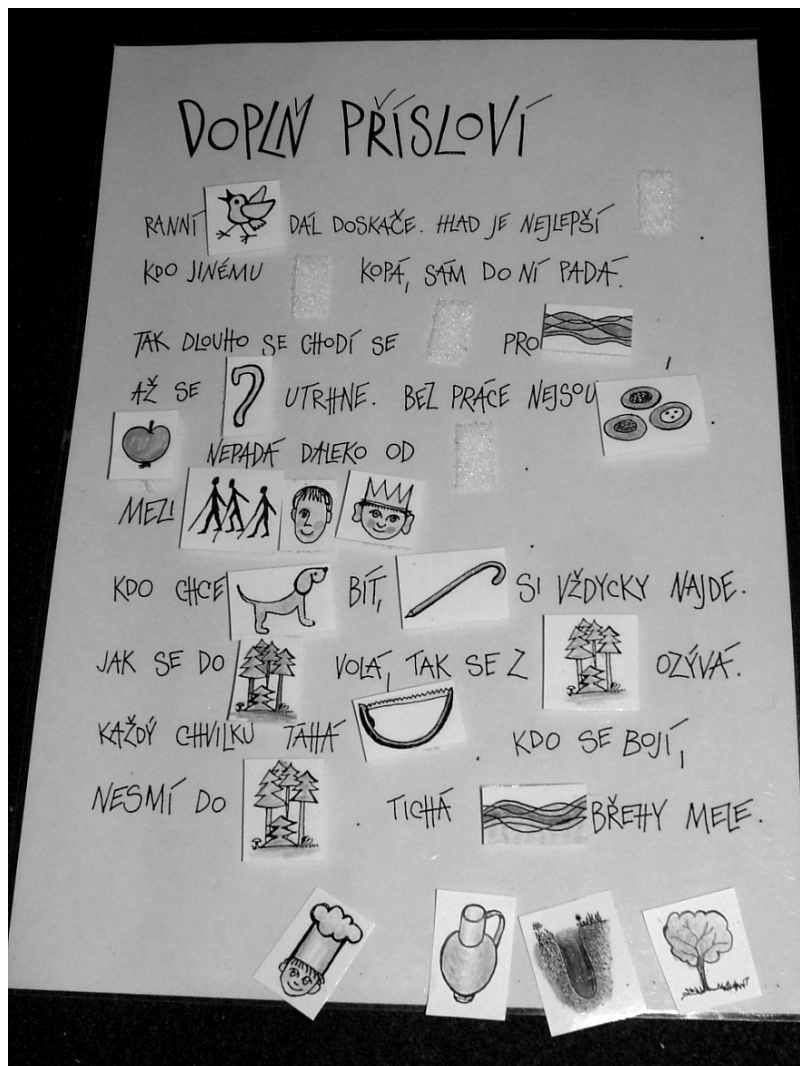 DOPLŇ PŘÍSLOVÍ
RANNÍ DÁL DOSKÁČE. HLAD JE NEJLEPŠÍ .
KDO JINÉMU KOPÁ, SÁM DO NÍ PADÁ.
TAK DLOUHO SE CHODÍ SE PRO ,
AŽ SE UTRHNE. BEZ PRÁCE NEJSOU .
NEPADÁ DALEKO OD .
MEZI .
KDO CHCE BÍT, SI VŽDYCKY NAJDE.
JAK SE DO VOLÁ, TAK SE Z OZÝVÁ.
KAŽDÝ CHVILKU TAHÁ . KDO SE BOJÍ,
NESMÍ DO . TICHÁ BŘEHY MELE.